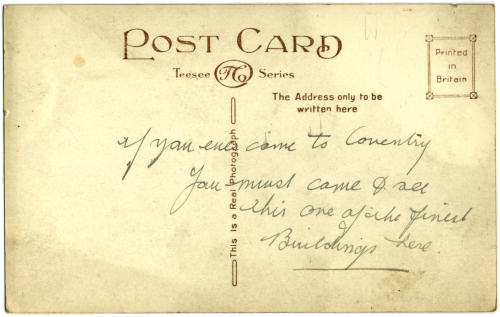 POST CARD
Teesee TCo Series
Printed
in
Britain
The Address only to be
written here
This is a Real Photograph
If you ever come to Coventry
You must come & see
this one of the finest
Buildings here.